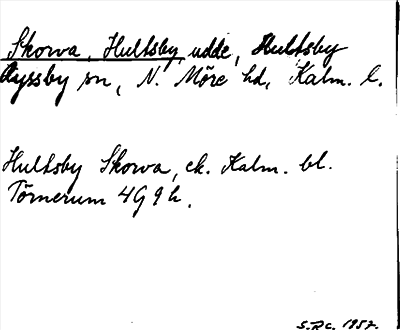 Skorva, Hultsby, udde, Hultsby
Ryssby sn, N. Möre hd, Kalm. l.
Hultsby Skorva, ek. Kalm. bl.
Törnerum 4G 9h.
S.Rc. 1957.